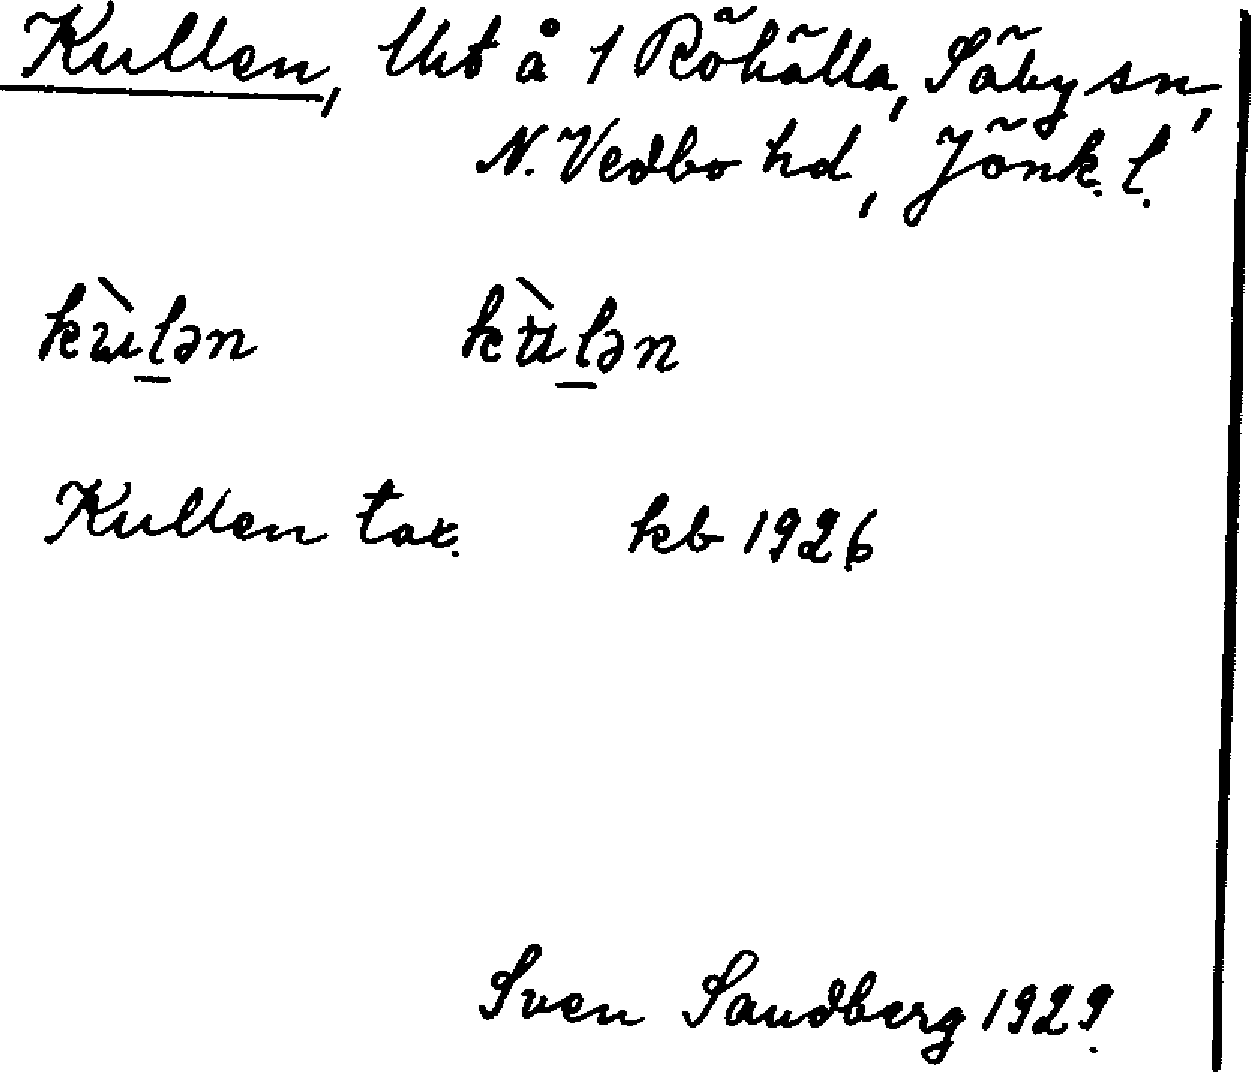 Kullen, lht å 1 Röhälla, Säby sn,
N. Vedbo hd, Jönk. l.
kùl̠ən kùl̠ən
Kullen tax. kb 1926
Sven Sandberg 1929.